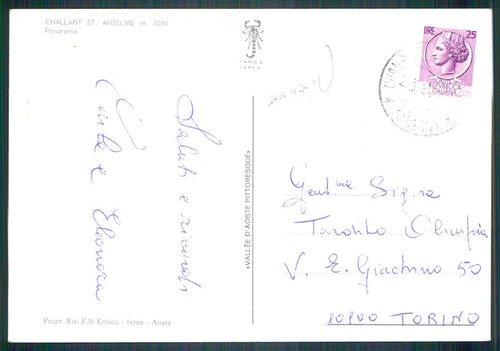 CHALLANT ST. ANSELME m. 1050
Panorama
ENRICO
IVREA
LIRE 25
REPVBBLICA
ITALIANA
Saluti e ricordi
Carla e Eleonora
«VALLÉE D'AOSTE PITTORESQUE»
Gent.ma Sig.ra
Olimpia
V. E. Giachino 50
10100 TORINO
Propr. Ris. F.lli Enrico - Ivrea - Aosta